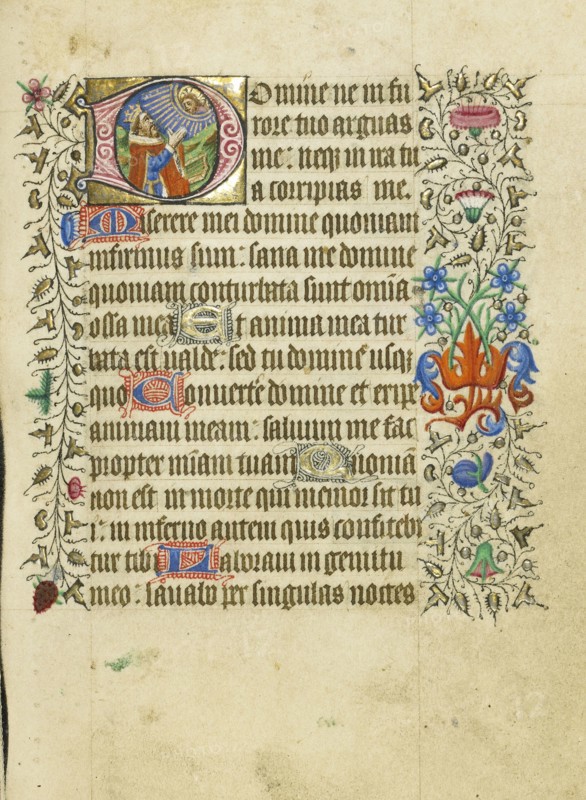 Domine ne in fu
rore tuo arguas
me: neqz in ira tu
a corripias me.
Miserere mei domine quoniam
infirmus sum: sana me domine
quoniam conturbata sunt om̄ia
ossa mea Et anima mea tur
bata est valde: sed tu domine usqz
quo Convertē domine et eripe
animam meam: salvum me fac
propter mīam tuam Quoniā
non est in morte qui memor sit tu
i: in inferno autem quis confitebi
tur tibi Laboravi in gemitu
meo: lavabo per singulas noctes